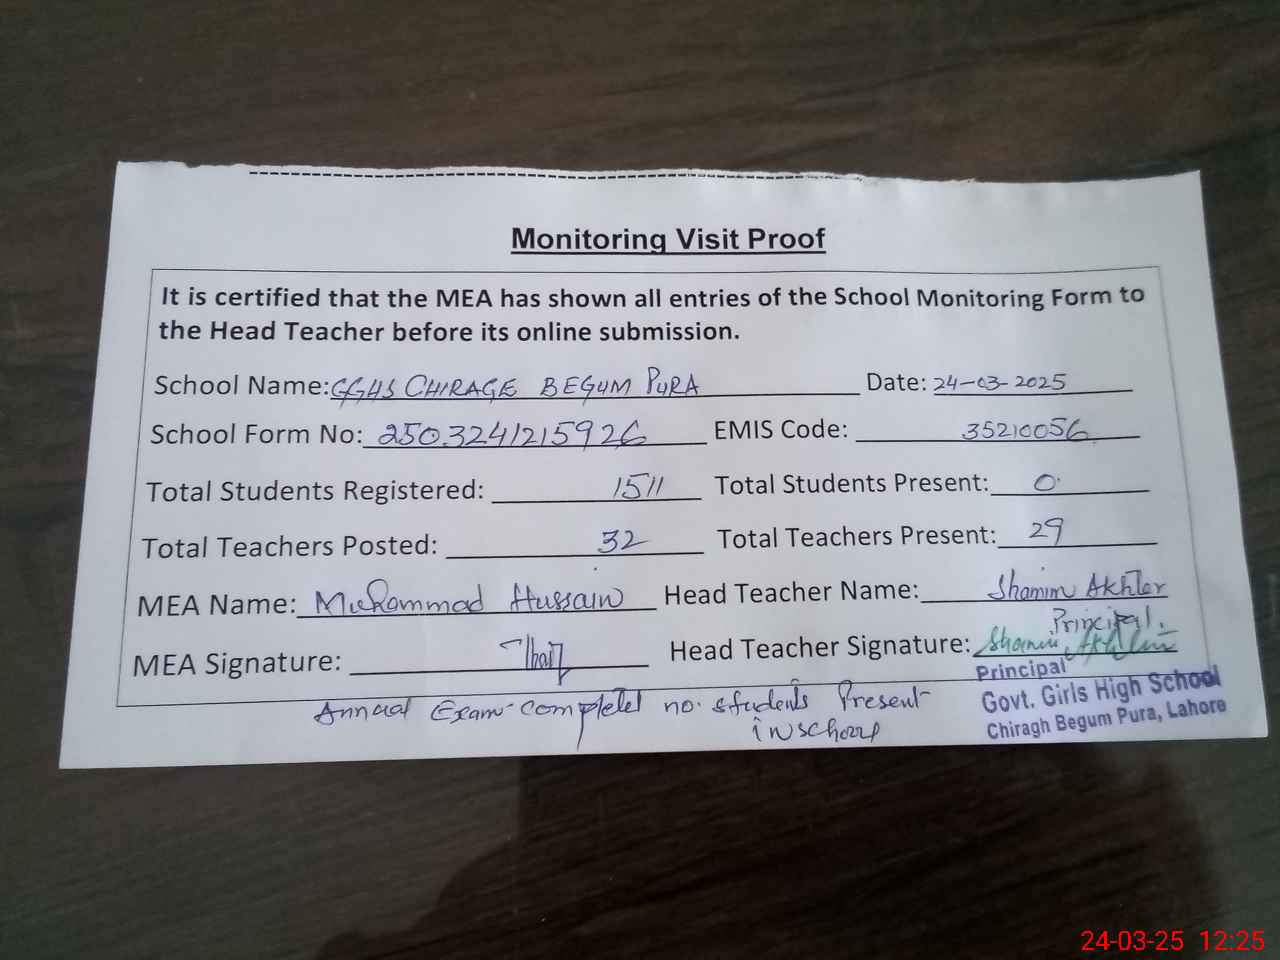 Monitoring Visit Proof
It is certified that the MEA has shown all entries of the School Monitoring Form to
the Head Teacher before its online submission.
School Name: GGHS CHIRAGE BEGUM PURA Date: 24-03-2025
School Form No: 2503241215926 EMIS Code: 35210056
Total Students Registered: 1511 Total Students Present: 0
Total Teachers Posted: 32 Total Teachers Present: 29
MEA Name: Muhammad Hussain Head Teacher Name: Shamim Akhter
Principal.
MEA Signature: Head Teacher Signature: Shamim Akhter
Principal
Govt. Girls High School
Chiragh Begum Pura, Lahore
Annual Exam completed no. students Present
in school
24-03-25 12:25